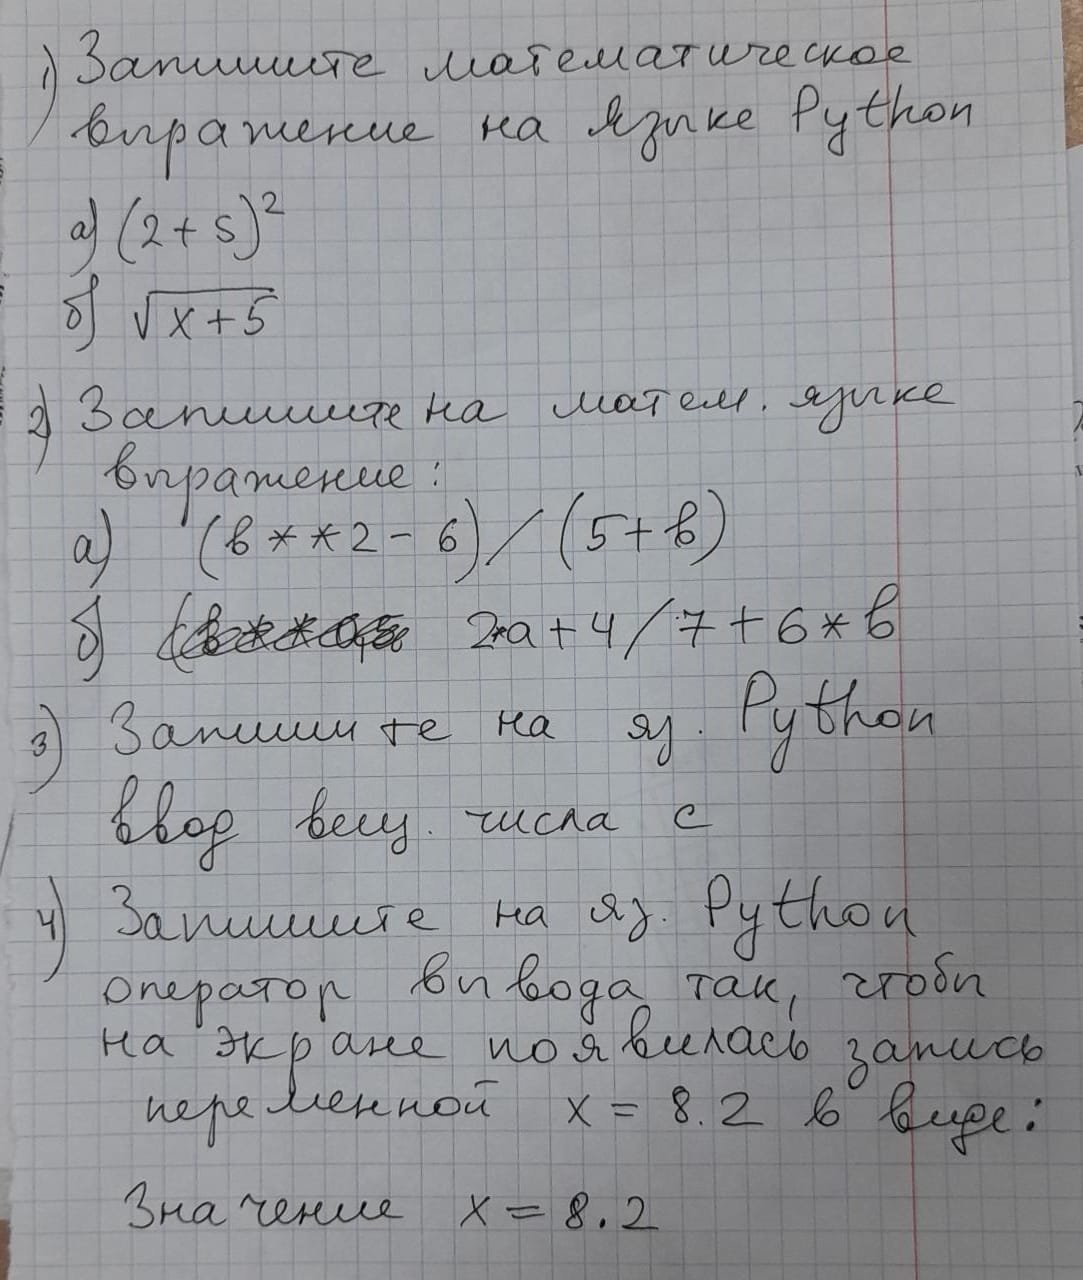 1) Запишите математическое
выражение на языке Python
а) (2 + 5)²
б) √x + 5
2) Запишите на матем. языке
выражение:
а) (b * * 2 - 6) / (5 + b)
б) 2*a + 4 / 7 + 6 * b
3) Запишите на яз. Python
ввод вещ. числа c
4) Запишите на яз. Python
оператор вывода так, чтобы
на экране появилась запись
переменной x = 8.2 в виде:
Значение x = 8.2